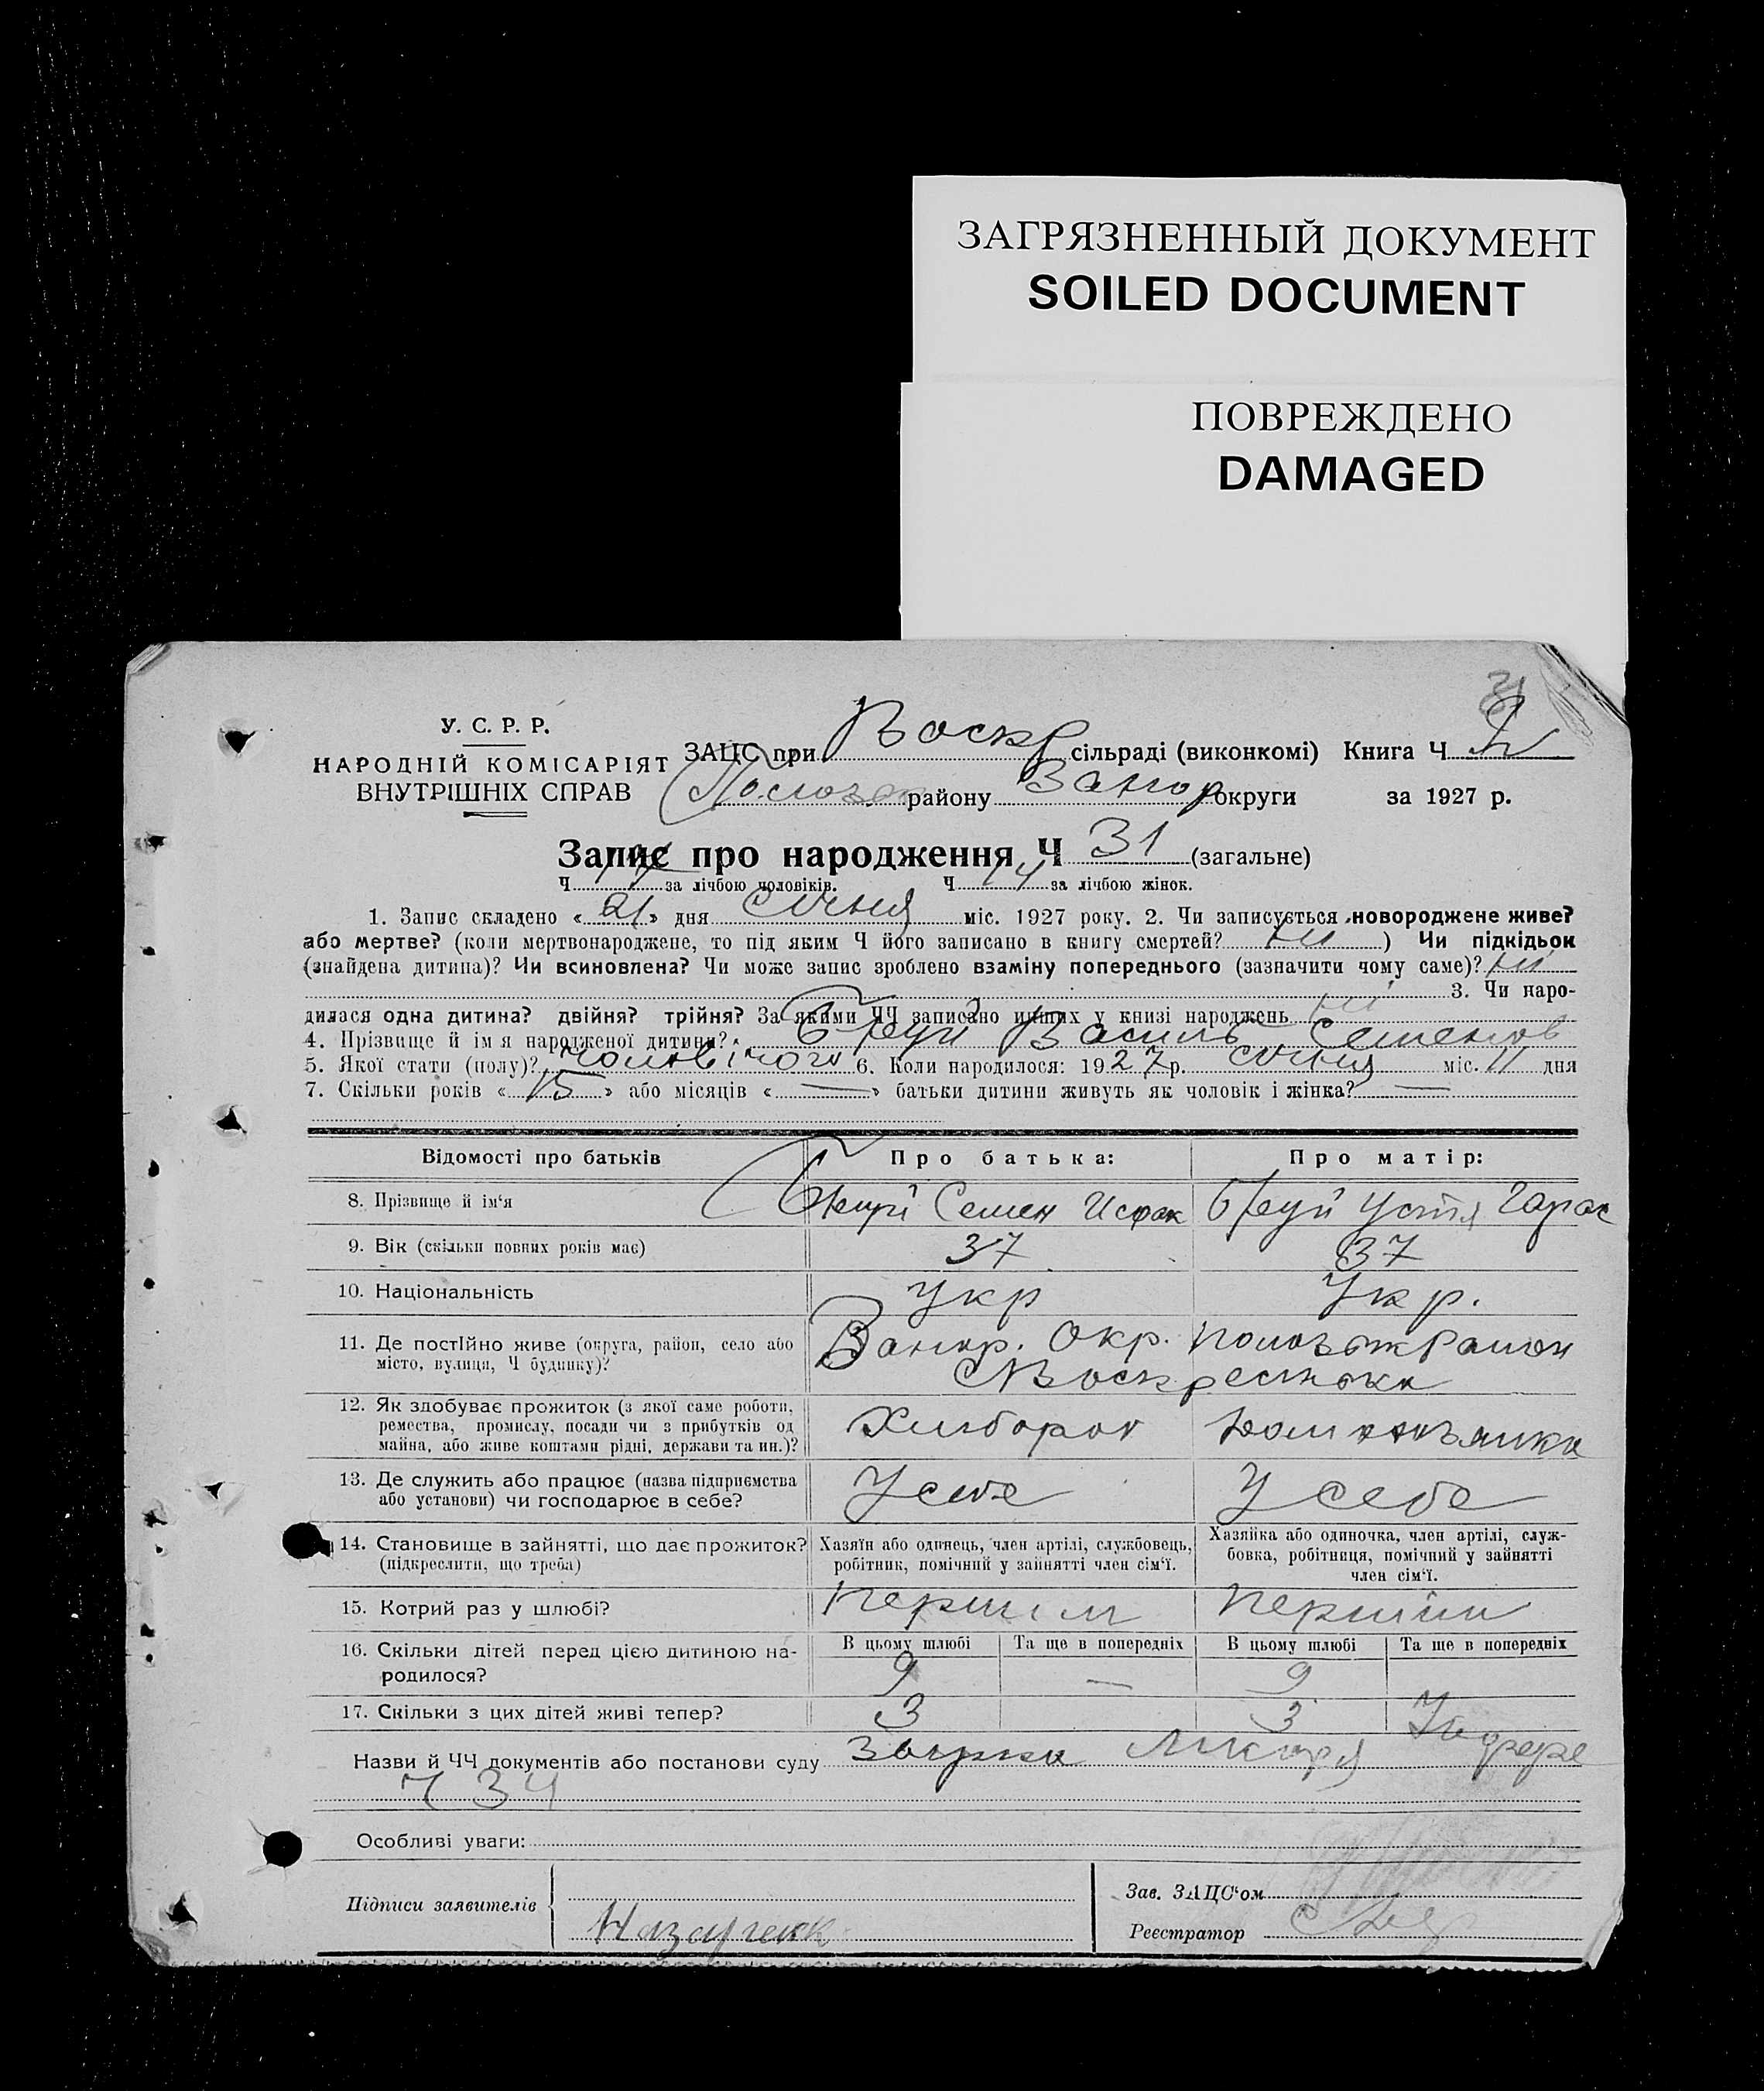 ЗАГРЯЗНЕННЫЙ ДОКУМЕНТ
SOILED DOCUMENT
ПОВРЕЖДЕНО
DAMAGED
31
У. С. Р. Р.
НАРОДНІЙ КОМІСАРІЯТ
ВНУТРІШНІХ СПРАВ
ЗАЦС при Воскр сільраді (виконкомі) Книга Ч
району Запор округи за 1927 р.
Запис про народження Ч 31 (загальне)
Ч 17 за лічбою чоловіків. Ч 14 за лічбою жінок.
1. Запис складено « 21 » дня січня міс. 1927 року. 2. Чи записується новороджене живе?
або мертве? (коли мертвонароджене, то під яким Ч його записано в книгу смертей? ні ) Чи підкідьок
(знайдена дитина)? Чи всиновлена? Чи може запис зроблено взаміну попереднього (зазначити чому саме)? ні
3. Чи наро-
дилася одна дитина? двійня? трійня? За якими ЧЧ записано инших у книзі народжень ні
4. Прізвище й імя народженої дитини? Василь Семенов
5. Якої стати (полу)? чоловічого 6. Коли народилося: 1927 р. січня міс. 11 дня
7. Скільки років « 15 » або місяців « — » батьки дитини живуть як чоловік і жінка? —
Відомості про батьків Про батька: Про матір:
8. Прізвище й ім'я Семен Устя
9. Вік (скільки повних років має) 37 37
10. Національність Укр Укр.
11. Де постійно живе (округа, район, село або
місто, вулиця, Ч будинку)?
Запор. Окр.
12. Як здобуває прожиток (з якої саме роботи,
ремества, промислу, посади чи з прибутків од
майна, або живе коштами рідні, держави та ин.)?
13. Де служить або працює (назва підприємства
або установи) чи господарює в себе?
У себе У себе
14. Становище в зайнятті, що дає прожиток?
(підкреслити, що треба)
Хазяїн або одинець, член артілі, службовець,
робітник, помічний у зайнятті член сім'ї.
Хазяйка або одиночка, член артілі, служ-
бовка, робітниця, помічний у зайнятті
член сім'ї.
15. Котрий раз у шлюбі? першим
16. Скільки дітей перед цією дитиною на-
родилося?
В цьому шлюбі Та ще в попередніх В цьому шлюбі Та ще в попередніх
9 — 9
17. Скільки з цих дітей живі тепер? 3 3
Назви й ЧЧ документів або постанови суду
Ч 34
Особливі уваги:
Підписи заявителів
Зав. ЗАЦС'ом
Реєстратор